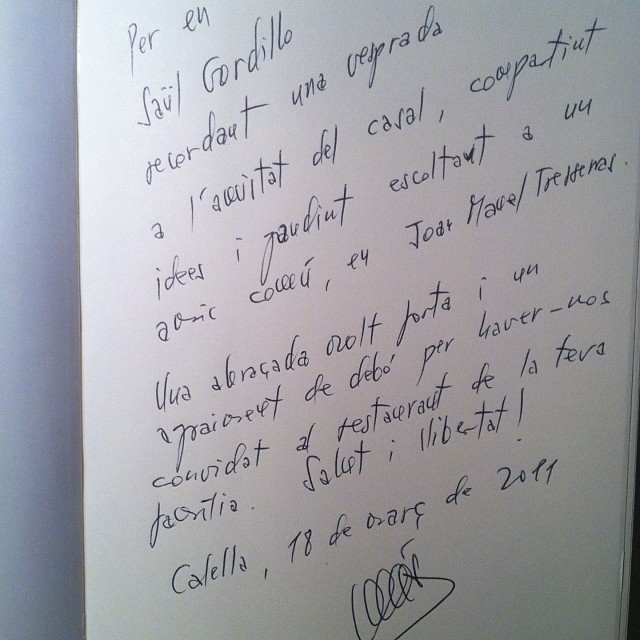 Per en
Saül Gordillo
recordant una vesprada
a l'amistat del casal, compartint
idees i gaudint escoltant a un
amic comú, en Joan Manel Tresserras.
Una abraçada molt forta i un
agraiment de debó per haver-nos
convidat al restaurant de la teva
família. Salut i llibertat!
Calella, 18 de març de 2011